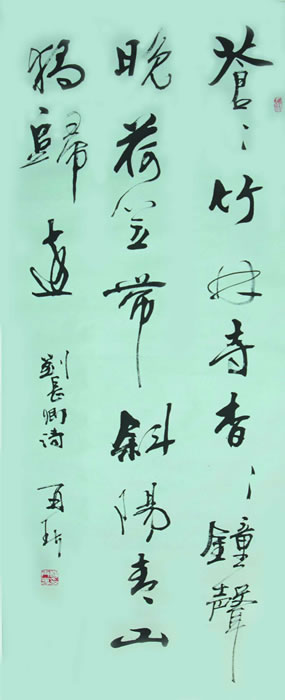 蒼々竹林寺杳々鐘聲
晚荷笠帶斜陽青山
獨歸遠
劉長卿詩